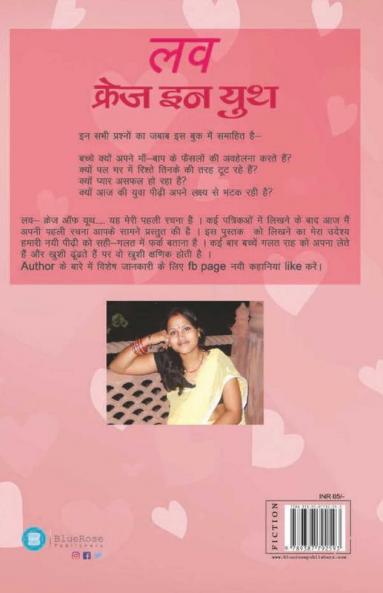 लव
क्रेज इन यूथ
इन सभी प्रश्नों का जबाब इस बुक में समाहित है–
बच्चे क्यों अपने माँ–बाप के फैसलों की अवहेलना करते हैं?
क्यों पल भर में रिश्ते तिनके की तरह टूट रहे हैं?
क्यों प्यार असफल हो रहा है?
क्यों आज की युवा पीढ़ी अपने लक्ष्य से भटक रही है?
लव– क्रेज ऑफ यूथ.... यह मेरी पहली रचना है । कई पत्रिकाओं में लिखने के बाद आज मैं
अपनी पहली रचना आपके सामने प्रस्तुत की है । इस पुस्तक को लिखने का मेरा उदेश्य
हमारी नयी पीढ़ी को सही–गलत में फर्क बताना है । कई बार बच्चें गलत राह को अपना लेते
हैं और खुशी ढूंढते हैं पर वो खुशी क्षणिक होती है ।
Author के बारे में विशेष जानकारी के लिए fb page नयी कहानियां like करें।
INR 85/-
FICTION
BlueRose
Publishers
www.bluerosepublishers.com